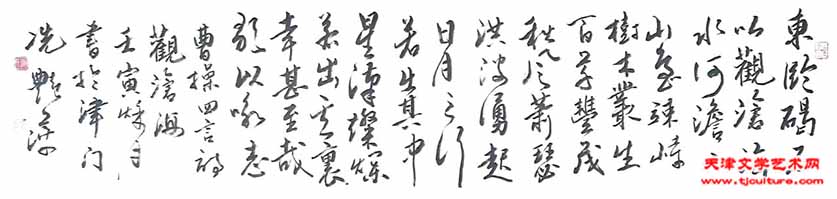 東臨碣石
以觀滄海
水何澹澹
山島竦峙
樹木叢生
百草豐茂
秋風蕭瑟
洪波湧起
日月之行
若出其中
星漢燦爛
若出其裏
幸甚至哉
歌以詠志
曹操四言詩
觀滄海
壬寅秋月
書於津门
冼艷
天津文学艺术网
www.tjculture.com